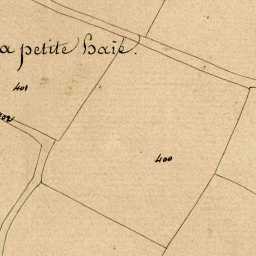 a petite haie.
401
400